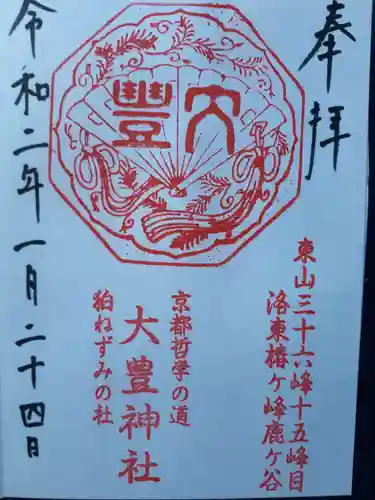 奉拝
大豐
東山三十六峰十五峰目
洛東椿ケ峰鹿ケ谷
京都哲学の道
大豊神社
狛ねずみの社
令和二年一月二十四日